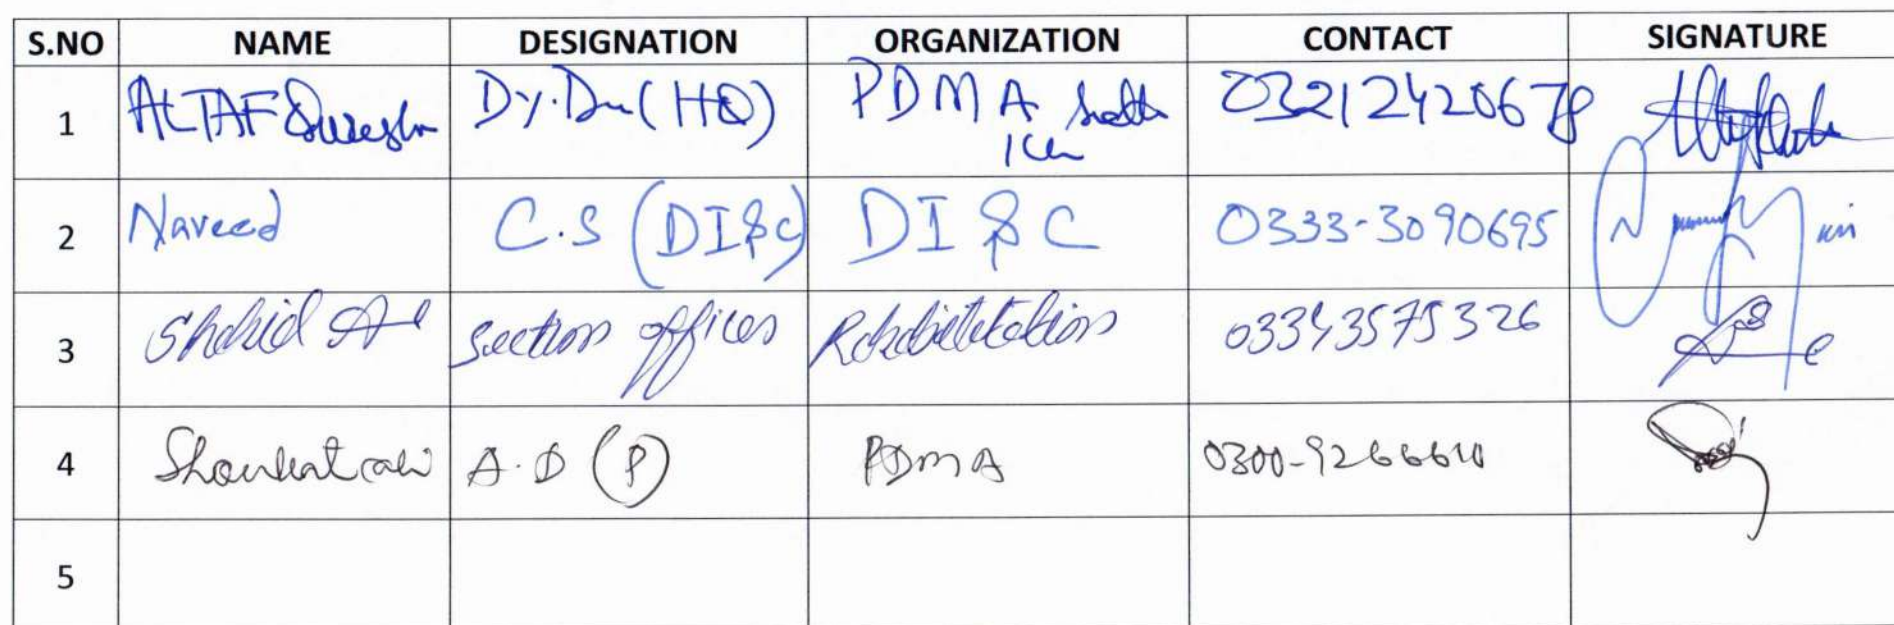 S.NO NAME DESIGNATION ORGANIZATION CONTACT SIGNATURE
1 ALTAF Qureshi Dy.Dir (HQ) PDMA 03212420678
2 Naveed C.S (DI&C) DI & C 0333-3090695
3 Shahid section officer Rehabilitation 03343575326
4 Shoukat ali A.D (P) PDMA 0300-9266610
5